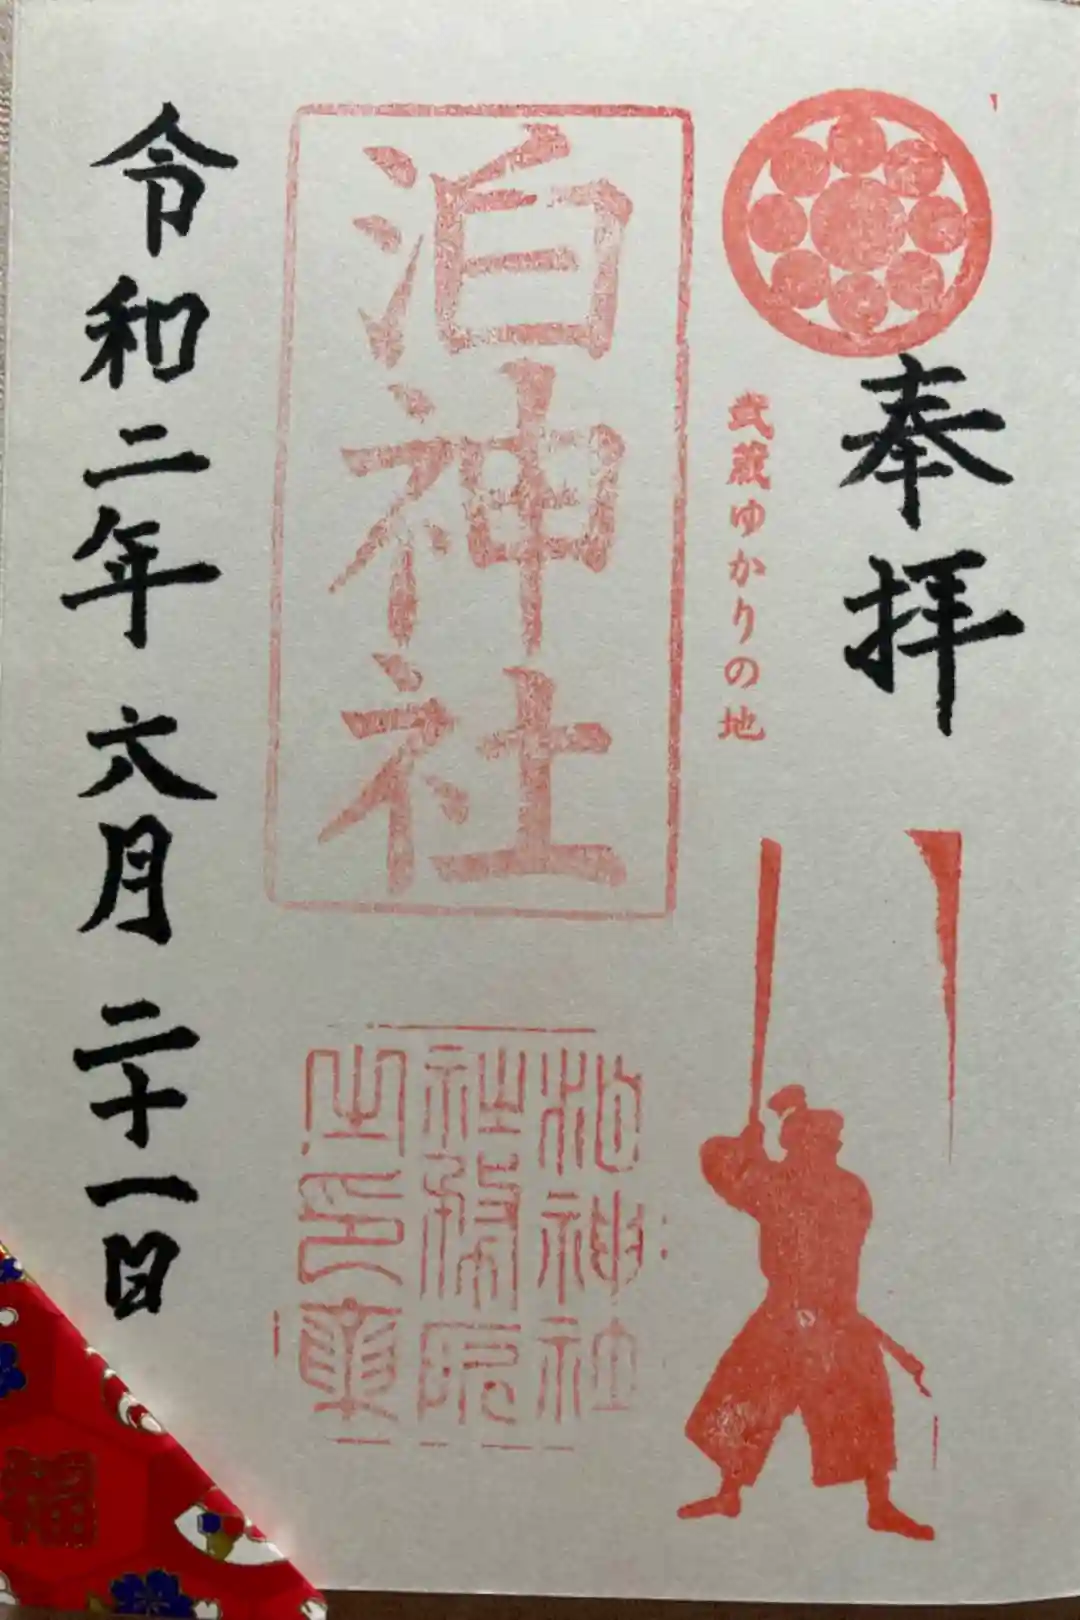 奉拝
武蔵ゆかりの地
泊神社
泊神社
社務所
之印章
令和二年 六月 二十一日
福